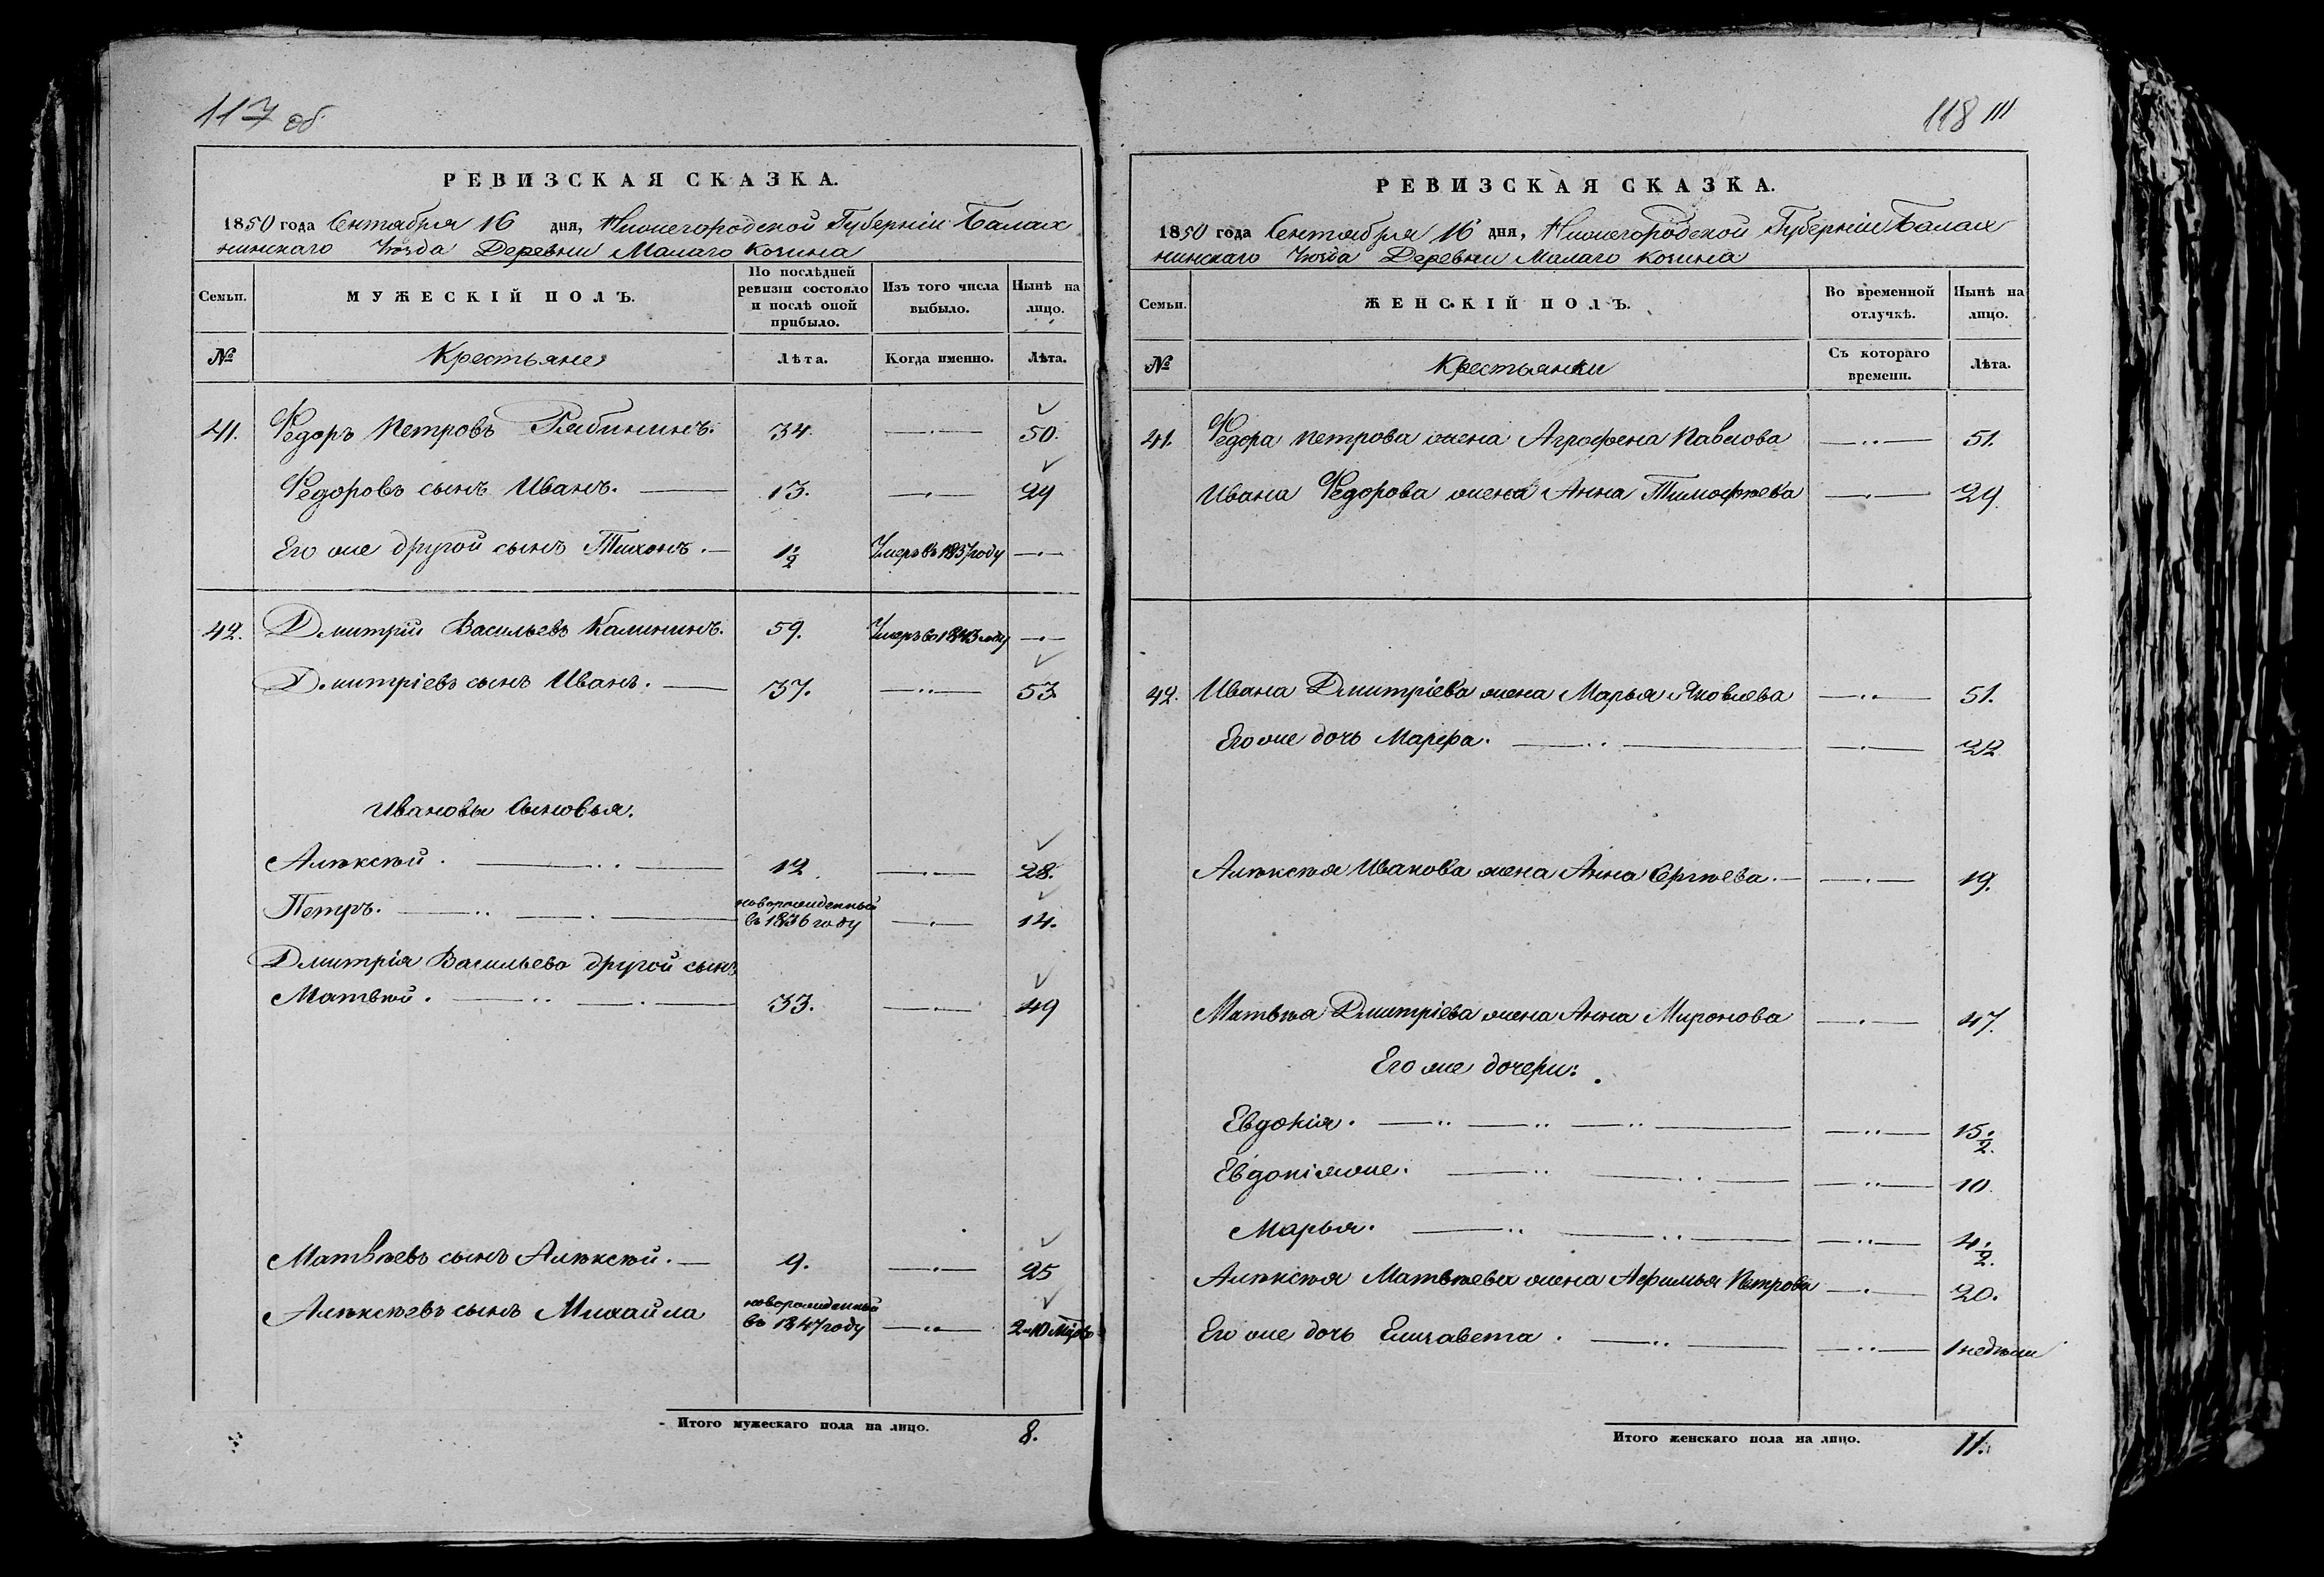 117 об
РЕВИЗСКАЯ СКАЗКА.
1850 года Сентября 16 дня, Нижегородской Губерніи Балах
нинскаго Уѣзда Деревни Малаго Козина
Семьи.
МУЖЕСКІЙ ПОЛЪ.
По послѣдней ревизіи состояло и послѣ оной прибыло.
Изъ того числа выбыло.
Нынѣ на лицо.
№
Крестьяне
Лѣта.
Когда именно.
Лѣта.
41. Федоръ Петровъ Рябининъ. 34. 50.
Федоровъ сынъ Иванъ. 13. 29
Его же другой сынъ Тихонъ. 1½ Умеръ въ 1837 году
42. Дмитрій Васильевъ Калининъ. 59. Умеръ въ 1843 году
Дмитріевъ сынъ Иванъ. 37. 53.
Ивановы Сыновья.
Алѣксѣй. 12. 28.
Петръ. новорожденный въ 1836 году 14.
Дмитрія Васильева другой сынъ
Матвѣй. 33. 49
Матвѣевъ сынъ Алѣксѣй. 9. 25
Алѣксѣевъ сынъ Михайла новорожденный въ 1847 году 2 и 10 Мцовъ
Итого мужескаго пола на лицо. 8.
118 111
РЕВИЗСКАЯ СКАЗКА.
1850 года Сентября 16 дня, Нижегородской Губерніи Балах
нинскаго Уѣзда Деревни Малаго Козина
Семьи.
ЖЕНСКІЙ ПОЛЪ.
Во временной отлучкѣ.
Нынѣ на лицо.
№
Крестьянки
Съ котораго времени.
Лѣта.
41. Федора Петрова жена Аграфена Павлова 51.
Ивана Федорова жена Анна Тимофѣева 29.
42. Ивана Дмитріева жена Марья Яковлева 51.
Его же дочь Марфа. 22
Алѣксѣя Иванова жена Анна Сергѣева. 19.
Матвѣя Дмитріева жена Анна Миронова 47.
Его же дочери:
Евдокія. 15½.
Евдокія же. 10.
Марья. 4½.
Алѣксѣя Матвѣева жена Афимья Петрова 20.
Его же дочь Елизавета. 1 недѣли
Итого женскаго пола на лицо. 11.